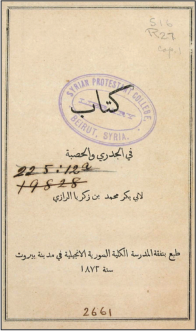 616
R27
cop.1
SYRIAN PROTESTANT COLLEGE.
BEIRUT, SYRIA.
كتاب
في الجدري والحصبة
225:12a
19828
لابي بكر محمد بن زكريا الرازي
طبع بنفقة المدرسة الكلية السورية الانجيلية في مدينة بيروت
سنة ١٨٧٢
2661